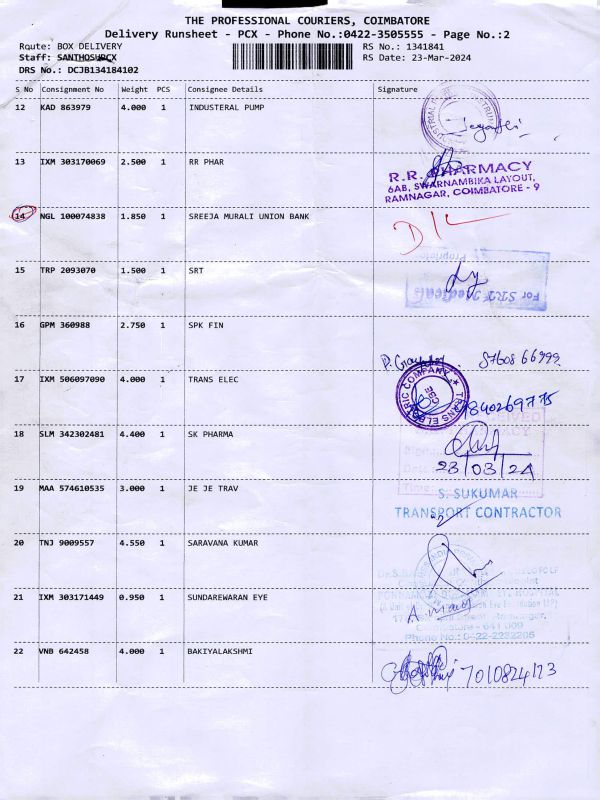 THE PROFESSIONAL COURIERS, COIMBATORE
Delivery Runsheet - PCX - Phone No.:0422-3505555 - Page No.:2
Route: BOX DELIVERY
RS No.: 1341841
Staff: SANTHOSUPCX
RS Date: 23-Mar-2024
DRS No.: DCJB134184102
S No Consignment No Weight PCS Consignee Details Signature
12 KAD 863979 4.000 1 INDUSTERAL PUMP
13 IXM 303170069 2.500 1 RR PHAR
R.R. PHARMACY
6AB, SWARNAMBIKA LAYOUT,
RAMNAGAR, COIMBATORE - 9
14 NGL 100074838 1.850 1 SREEJA MURALI UNION BANK
D/L
15 TRP 2093070 1.500 1 SRT
For SRT Medicals
16 GPM 360988 2.750 1 SPK FIN
97608 66999
17 IXM 506097090 4.000 1 TRANS ELEC
TRANS ELECTRIC COMPANY
CBE
9840269775
18 SLM 342302481 4.400 1 SK PHARMA
23/03/24
19 MAA 574610535 3.000 1 JE JE TRAV
S. SUKUMAR
TRANSPORT CONTRACTOR
20 TNJ 9009557 4.550 1 SARAVANA KUMAR
21 IXM 303171449 0.950 1 SUNDAREWARAN EYE
Coimbatore - 641 009
Phone No.: 0422-2232205
22 VNB 642458 4.000 1 BAKIYALAKSHMI
7010824173